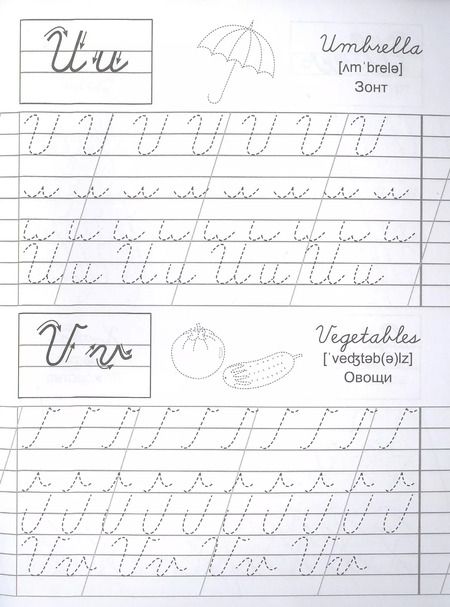 U u
Umbrella
[ʌmˈbrelə]
Зонт
U U U U U U U
Uu Uu Uu Uu
V v
Vegetables
[ˈveʤtəb(ə)lz]
Овощи
Vv Vv Vv Vv